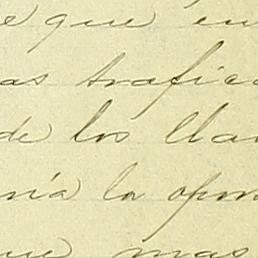 e que en
as trafica
de los lla
nía la opor
que mas